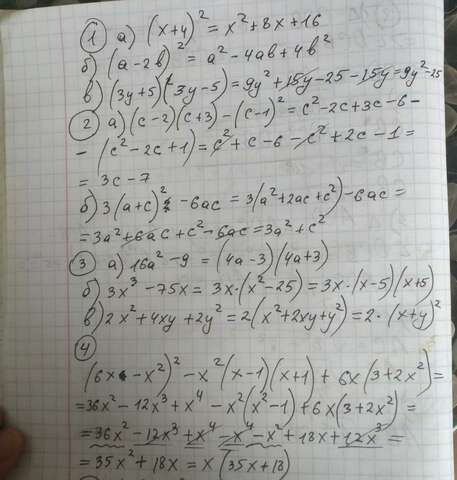 ① а) (x+4)² = x²+8x+16
б) (a-2b)² = a²-4ab+4b²
в) (3y+5)(3y-5)=9y²+15y-25-15y=9y²-25
② а) (c-2)(c+3)-(c-1)²=c²-2c+3c-6-
-(c²-2c+1)=c²+c-6-c²+2c-1=
=3c-7
б) 3(a+c)²-6ac=3(a²+2ac+c²)-6ac=
=3a²+6ac+c²-6ac=3a²+c²
③ а) 16a²-9=(4a-3)(4a+3)
б) 3x³-75x=3x·(x²-25)=3x·(x-5)(x+5)
в) 2x²+4xy+2y²=2(x²+2xy+y²)=2·(x+y)²
④
(6x-x²)²-x²(x-1)(x+1)+6x(3+2x²)=
=36x²-12x³+x⁴-x²(x²-1)+6x(3+2x²)=
=36x²-12x³+x⁴-x⁴-x²+18x+12x³=
=35x²+18x=x(35x+18)